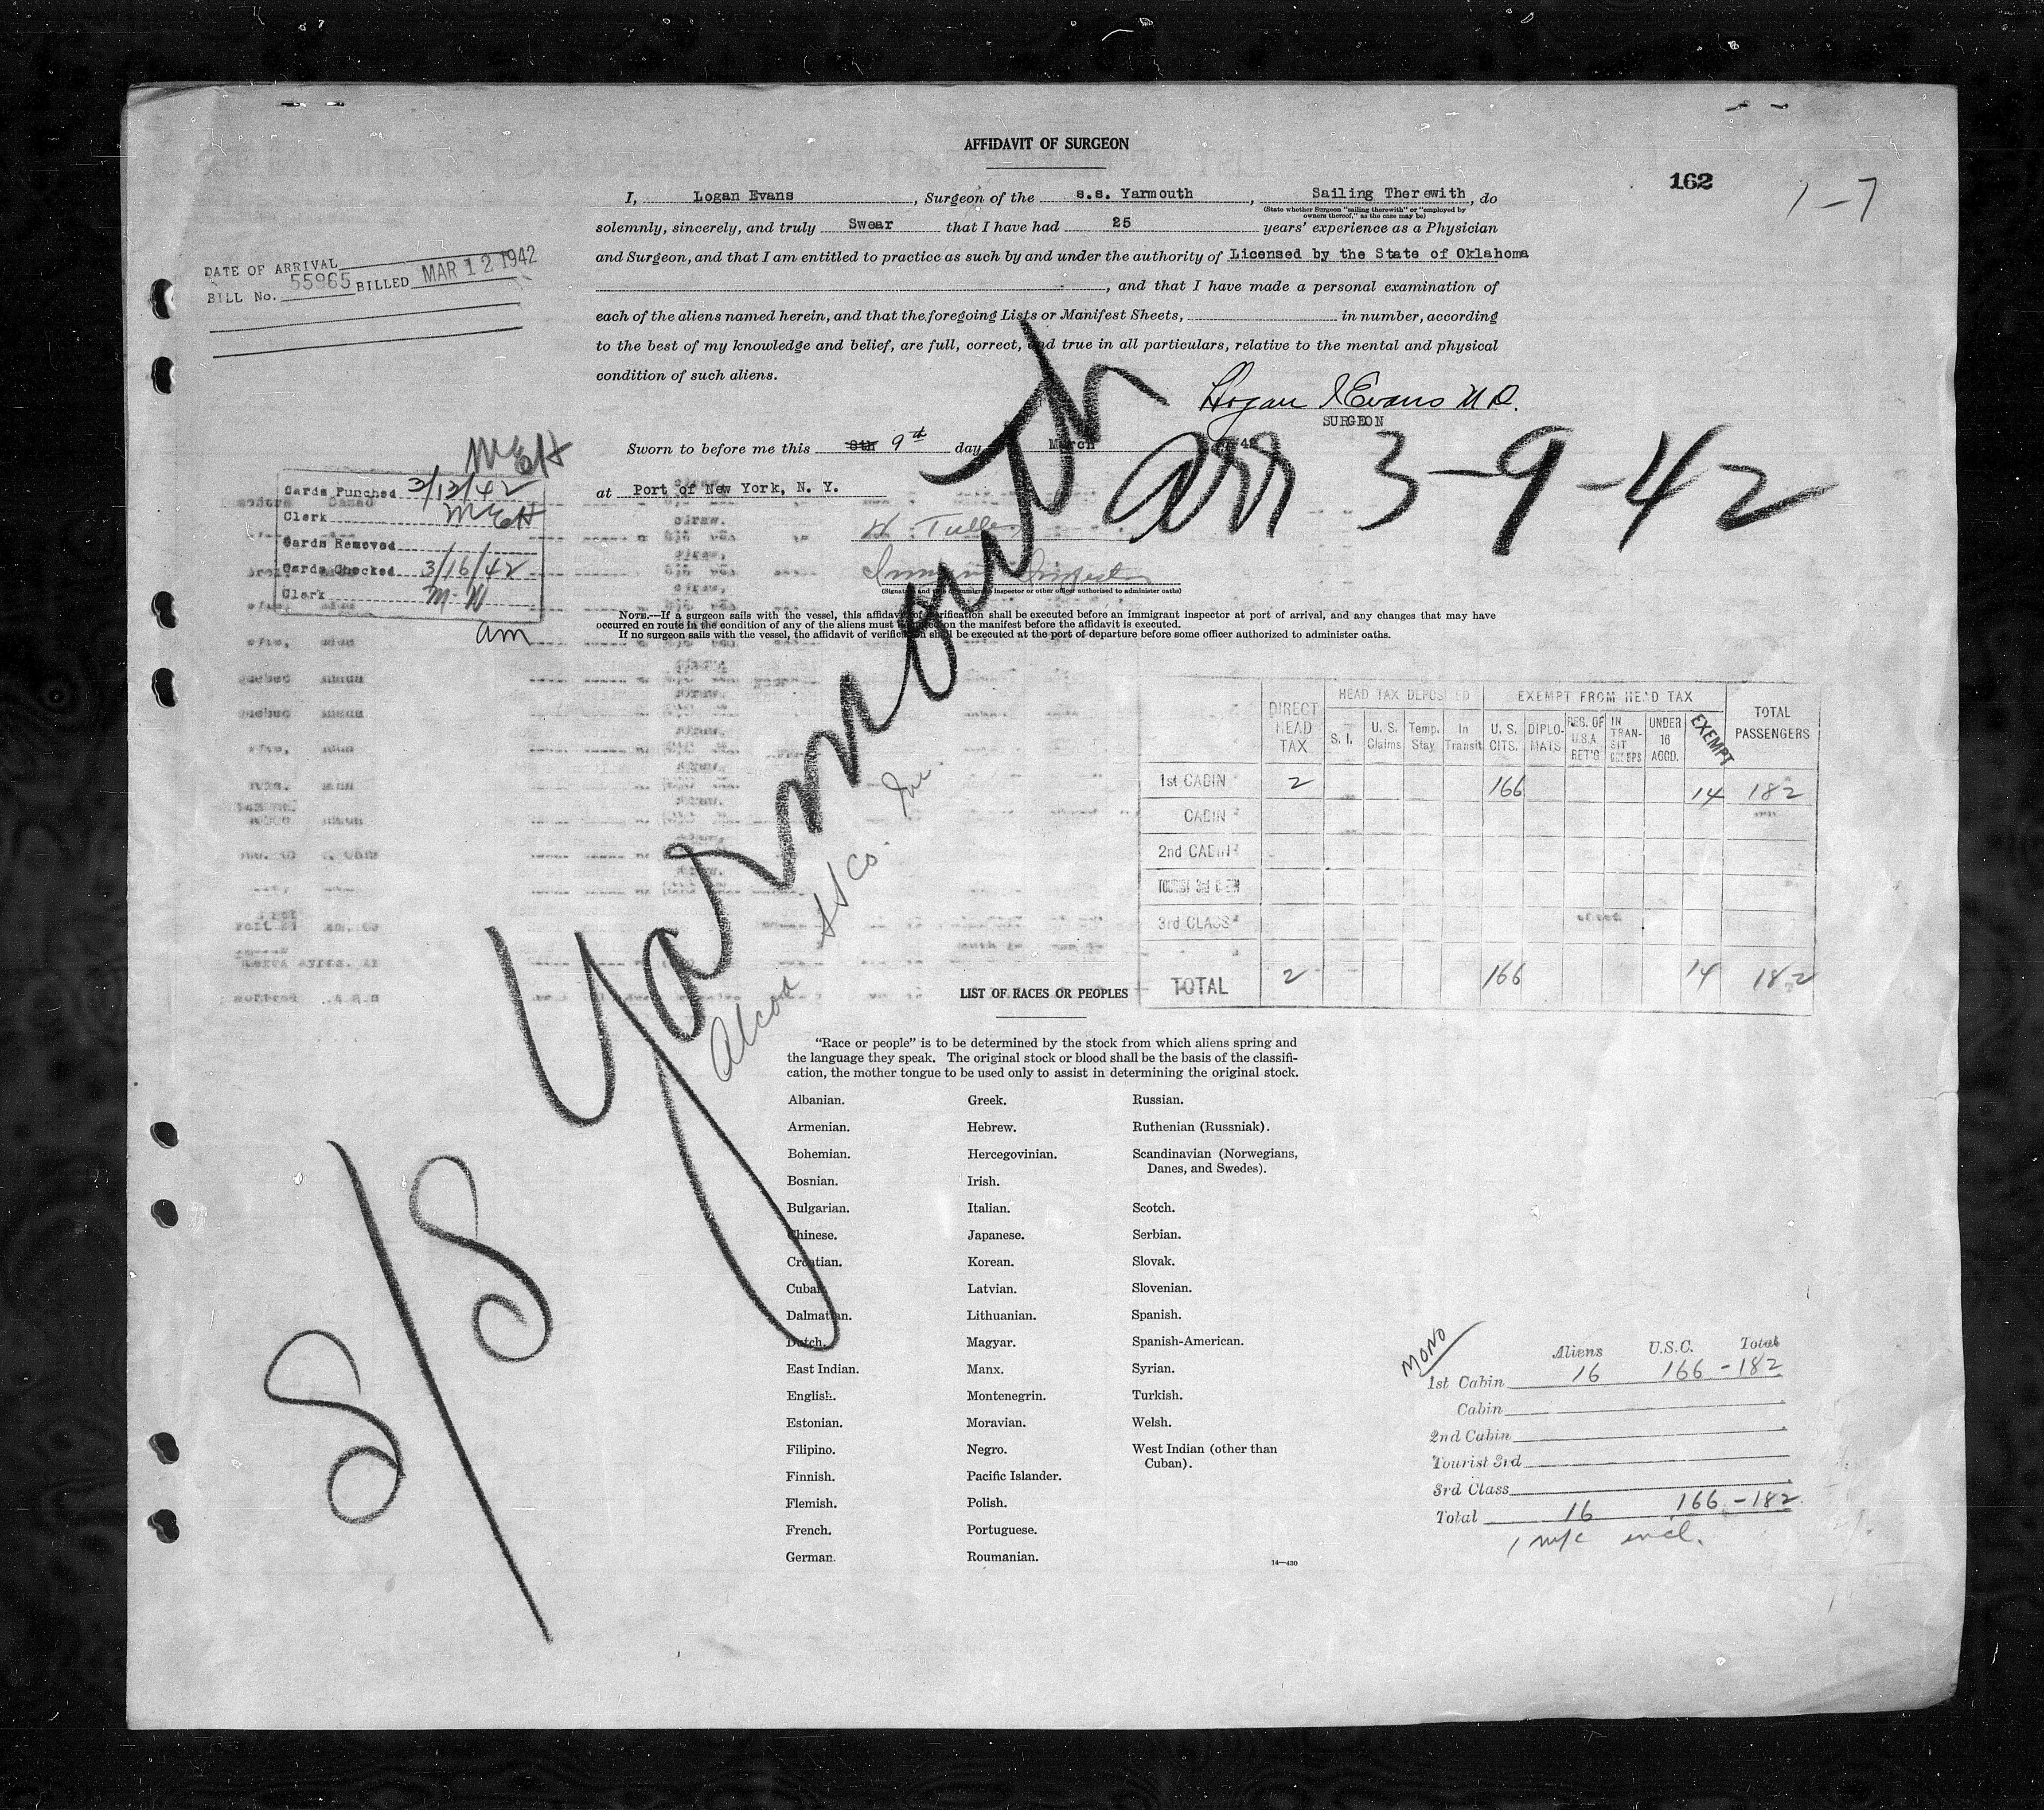 AFFIDAVIT OF SURGEON
162
1-7
I, Logan Evans, Surgeon of the s.s. Yarmouth, Sailing Therewith, do
(State whether Surgeon "sailing therewith" or "employed by
owners thereof," as the case may be)
solemnly, sincerely, and truly Swear that I have had 25 years' experience as a Physician
and Surgeon, and that I am entitled to practice as such by and under the authority of Licensed by the State of Oklahoma
, and that I have made a personal examination of
each of the aliens named herein, and that the foregoing Lists or Manifest Sheets, in number, according
to the best of my knowledge and belief, are full, correct, and true in all particulars, relative to the mental and physical
condition of such aliens.
Logan Evans M.D.
SURGEON
Sworn to before me this 8th 9th day March
at Port of New York, N. Y.
(Signature and title of immigrant inspector or other officer authorized to administer oaths)
NOTE.—If a surgeon sails with the vessel, this affidavit of verification shall be executed before an immigrant inspector at port of arrival, and any changes that may have
occurred en route in the condition of any of the aliens must on the manifest before the affidavit is executed.
If no surgeon sails with the vessel, the affidavit of verification shall be executed at the port of departure before some officer authorized to administer oaths.
DATE OF ARRIVAL
BILL No. 55965 BILLED MAR 12 1942
Cards Punched 3/13/42
Clerk
Cards Removed
Cards Checked 3/16/42
Clerk
am
S/S Yarmouth
arr 3-9-42
Alcoa SS Co. Inc
DIRECT HEAD TAX
HEAD TAX DEPOSITED
EXEMPT FROM HEAD TAX
TOTAL PASSENGERS
S. I.
U. S. Claims
Temp. Stay
In Transit
U. S. CITS.
DIPLO-MATS
RES. OF U.S.A RET'G
IN TRAN-SIT
UNDER 16 ACCD.
EXEMPT
1st CABIN 2 166 14 182
CABIN
2nd CABIN
TOURIST 3rd CABIN
3rd CLASS
TOTAL 2 166 14 182
LIST OF RACES OR PEOPLES
"Race or people" is to be determined by the stock from which aliens spring and
the language they speak. The original stock or blood shall be the basis of the classifi-
cation, the mother tongue to be used only to assist in determining the original stock.
Albanian.
Armenian.
Bohemian.
Bosnian.
Bulgarian.
Chinese.
Croatian.
Cuban.
Dalmatian.
Dutch.
East Indian.
English.
Estonian.
Filipino.
Finnish.
Flemish.
French.
German.
Greek.
Hebrew.
Hercegovinian.
Irish.
Italian.
Japanese.
Korean.
Latvian.
Lithuanian.
Magyar.
Manx.
Montenegrin.
Moravian.
Negro.
Pacific Islander.
Polish.
Portuguese.
Roumanian.
Russian.
Ruthenian (Russniak).
Scandinavian (Norwegians,
Danes, and Swedes).
Scotch.
Serbian.
Slovak.
Slovenian.
Spanish.
Spanish-American.
Syrian.
Turkish.
Welsh.
West Indian (other than
Cuban).
14—430
MONO
Aliens U.S.C. Total
1st Cabin 16 166 - 182
Cabin
2nd Cabin
Tourist 3rd
3rd Class
Total 16 166 - 182
incl.